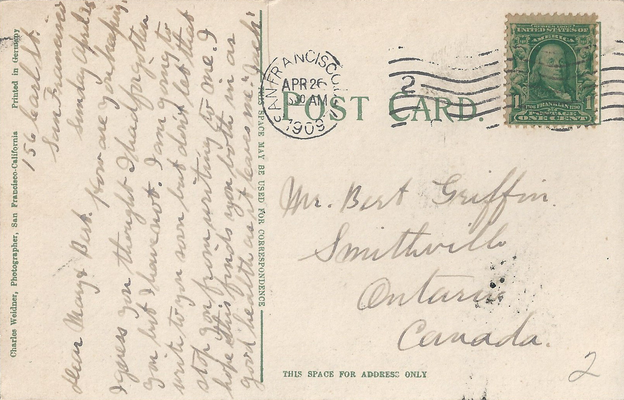 156 Carl St.
San Francisco
Sunday April 25
Dear Mary & Bert. How are you keeping.
I guess you thought I had forgotten
you but I have not. I am going to
write to you soon but don't let that
stop you from writing to me. I
hope this finds you both in as
good health as it leaves me.
Charles Weidner, Photographer, San Francisco-California Printed in Germany
THIS SPACE MAY BE USED FOR CORRESPONDENCE
POST CARD.
SAN FRANCISCO, CAL.
APR 26
AM
1909
2
UNITED STATES OF AMERICA
FRANKLIN
1 POSTAGE 1
ONE CENT
Mr. Bert Griffin.
Smithville
Ontario
Canada.
2
THIS SPACE FOR ADDRESS ONLY